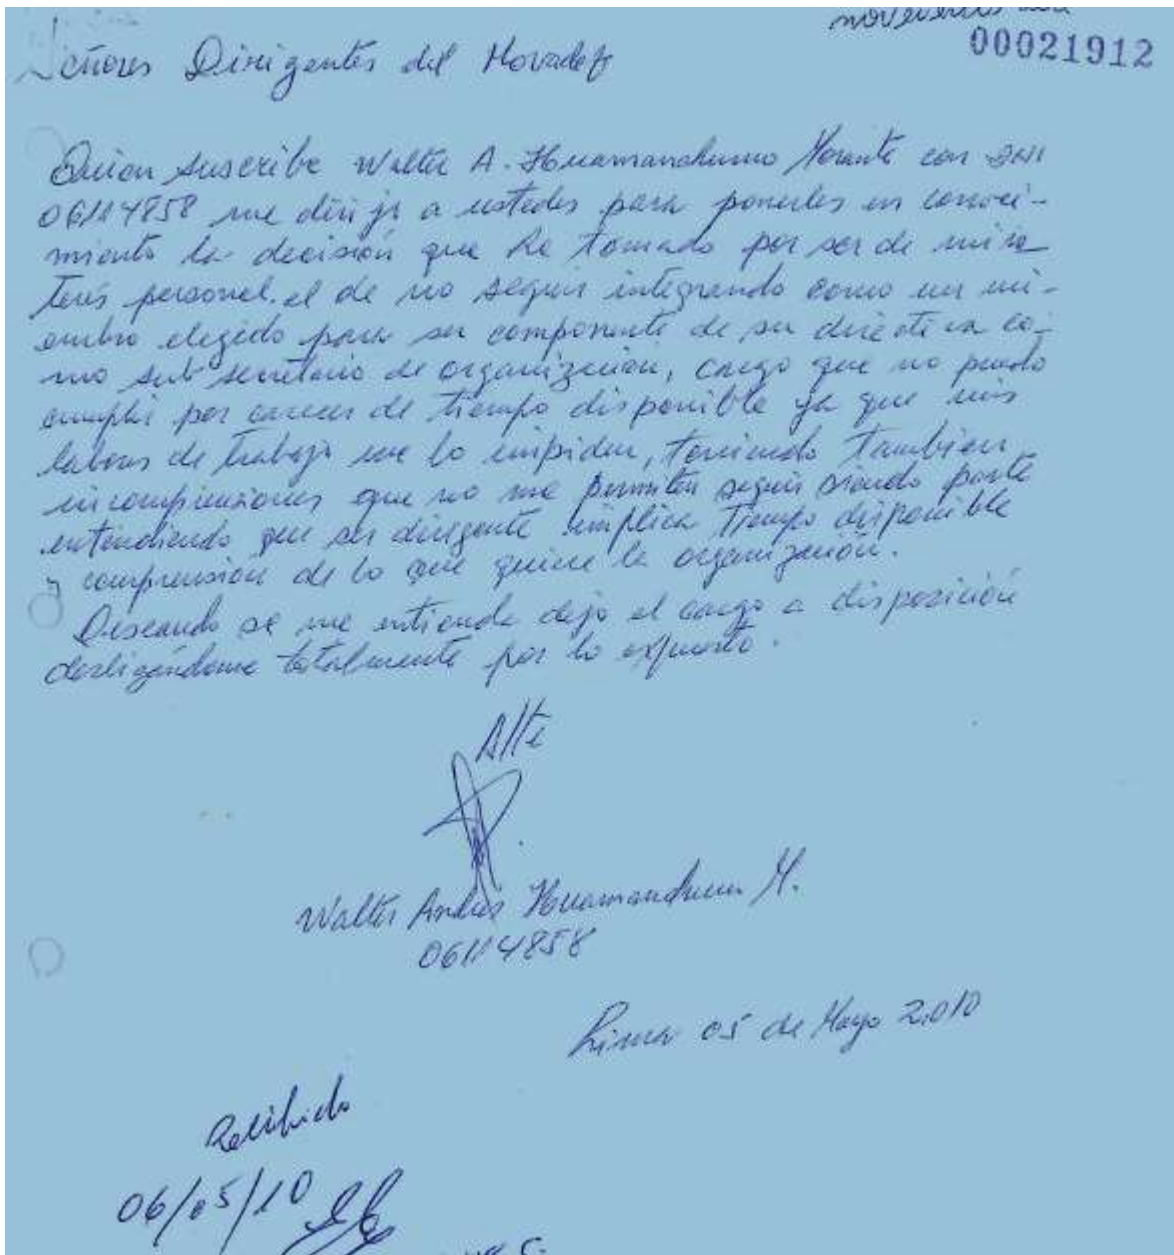 00021912
Señores Dirigentes del Movadef
Quien suscribe Walter A. Huamanchumo Morante con DNI
06114858 me dirijo a ustedes para ponerles en conoci-
miento la decisión que he tomado por ser de mi in
terés personal. el de no seguir integrando como un mi-
embro elegido para ser componente de su directiva co-
mo sub secretario de organización, cargo que no puedo
cumplir por carecer de tiempo disponible ya que mis
labores de trabajo me lo impiden, teniendo tambien
incomprensiones que no me permiten seguir siendo parte
entendiendo que ser dirigente implica tiempo disponible
y comprensión de lo que quiere la organización.
Deseando se me entienda dejo el cargo a disposición
desligándome totalmente por lo expuesto.
Atte
Walter Andrés Huamanchumo M.
06114858
Lima 05 de Mayo 2.010
Recibido
06/05/10